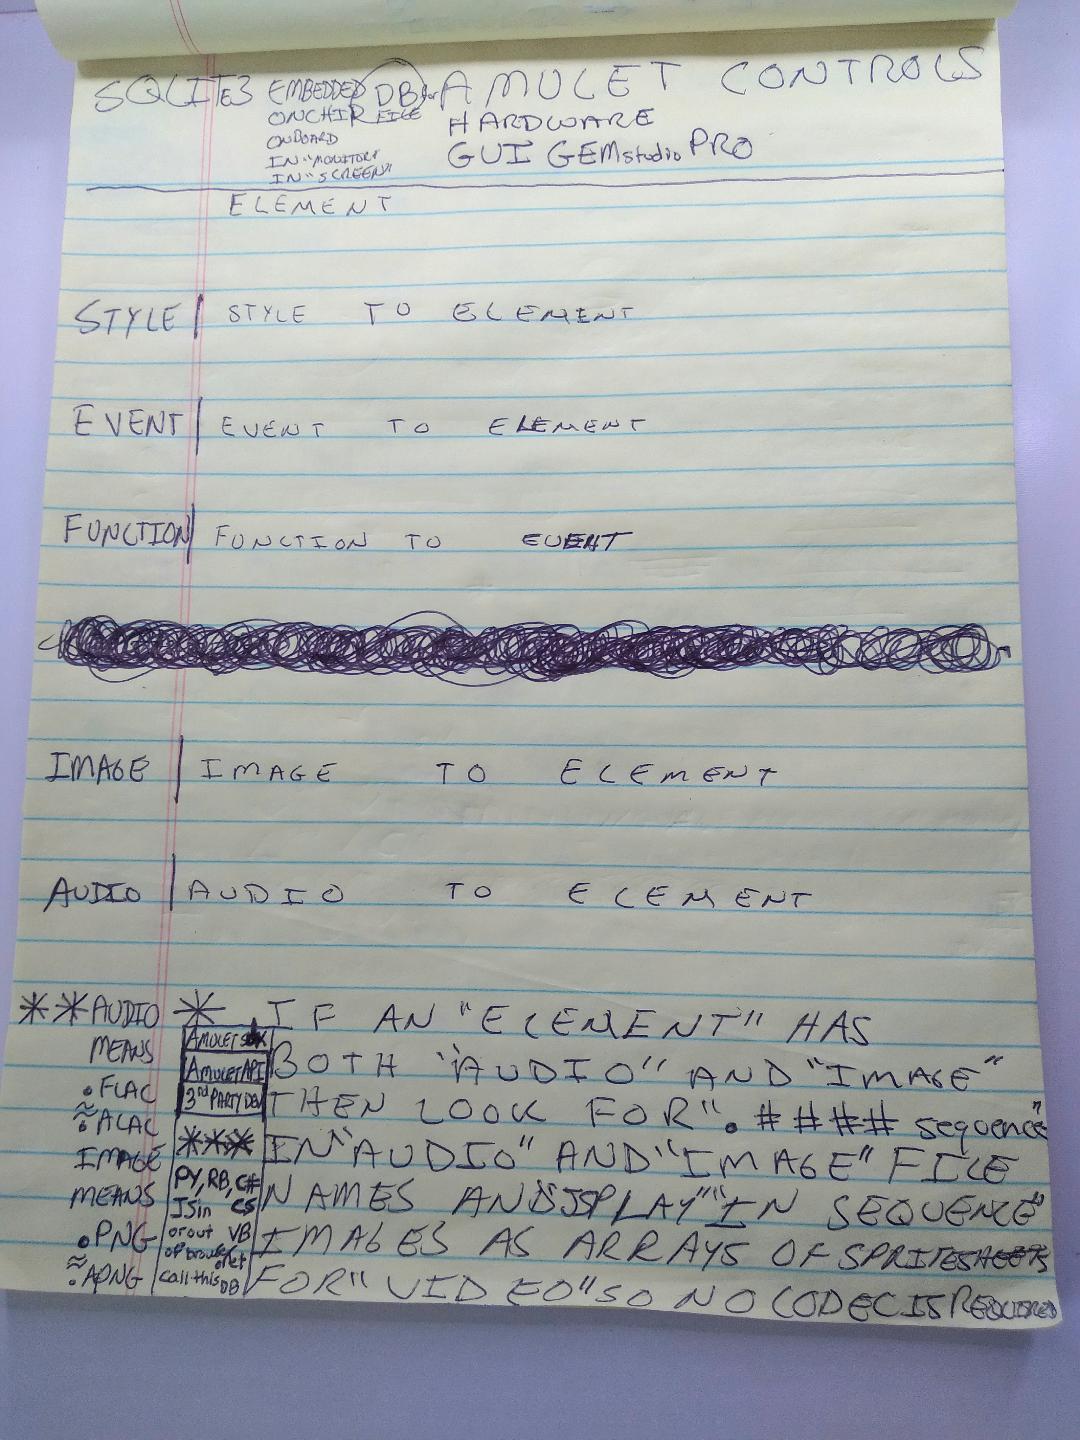 SQLITE3 EMBEDDED DB for AMULET CONTROLS
ONCHIP FILE HARDWARE
ONBOARD
IN "MONITOR" GUI GEMstudio PRO
IN "SCREEN"
ELEMENT
STYLE | STYLE TO ELEMENT
EVENT | EVENT TO ELEMENT
FUNCTION | FUNCTION TO EVENT
IMAGE | IMAGE TO ELEMENT
AUDIO | AUDIO TO ELEMENT
** AUDIO
MEANS
.FLAC
≈ .ALAC
IMAGE
MEANS
.PNG
≈ .APNG
*
AMULET
AMULET API
3rd PARTY DEV
***
PY, RB, C#
JS in CS
or out VB
of browser .Net
call this DB
IF AN "ELEMENT" HAS
BOTH "AUDIO" AND "IMAGE"
THEN LOOK FOR ".#### sequence"
IN "AUDIO" AND "IMAGE" FILE
NAMES AND "DISPLAY" "IN SEQUENCE"
IMAGES AS ARRAYS OF SPRITESHEETS
FOR "VIDEO" SO NO CODEC IS REQUIRED